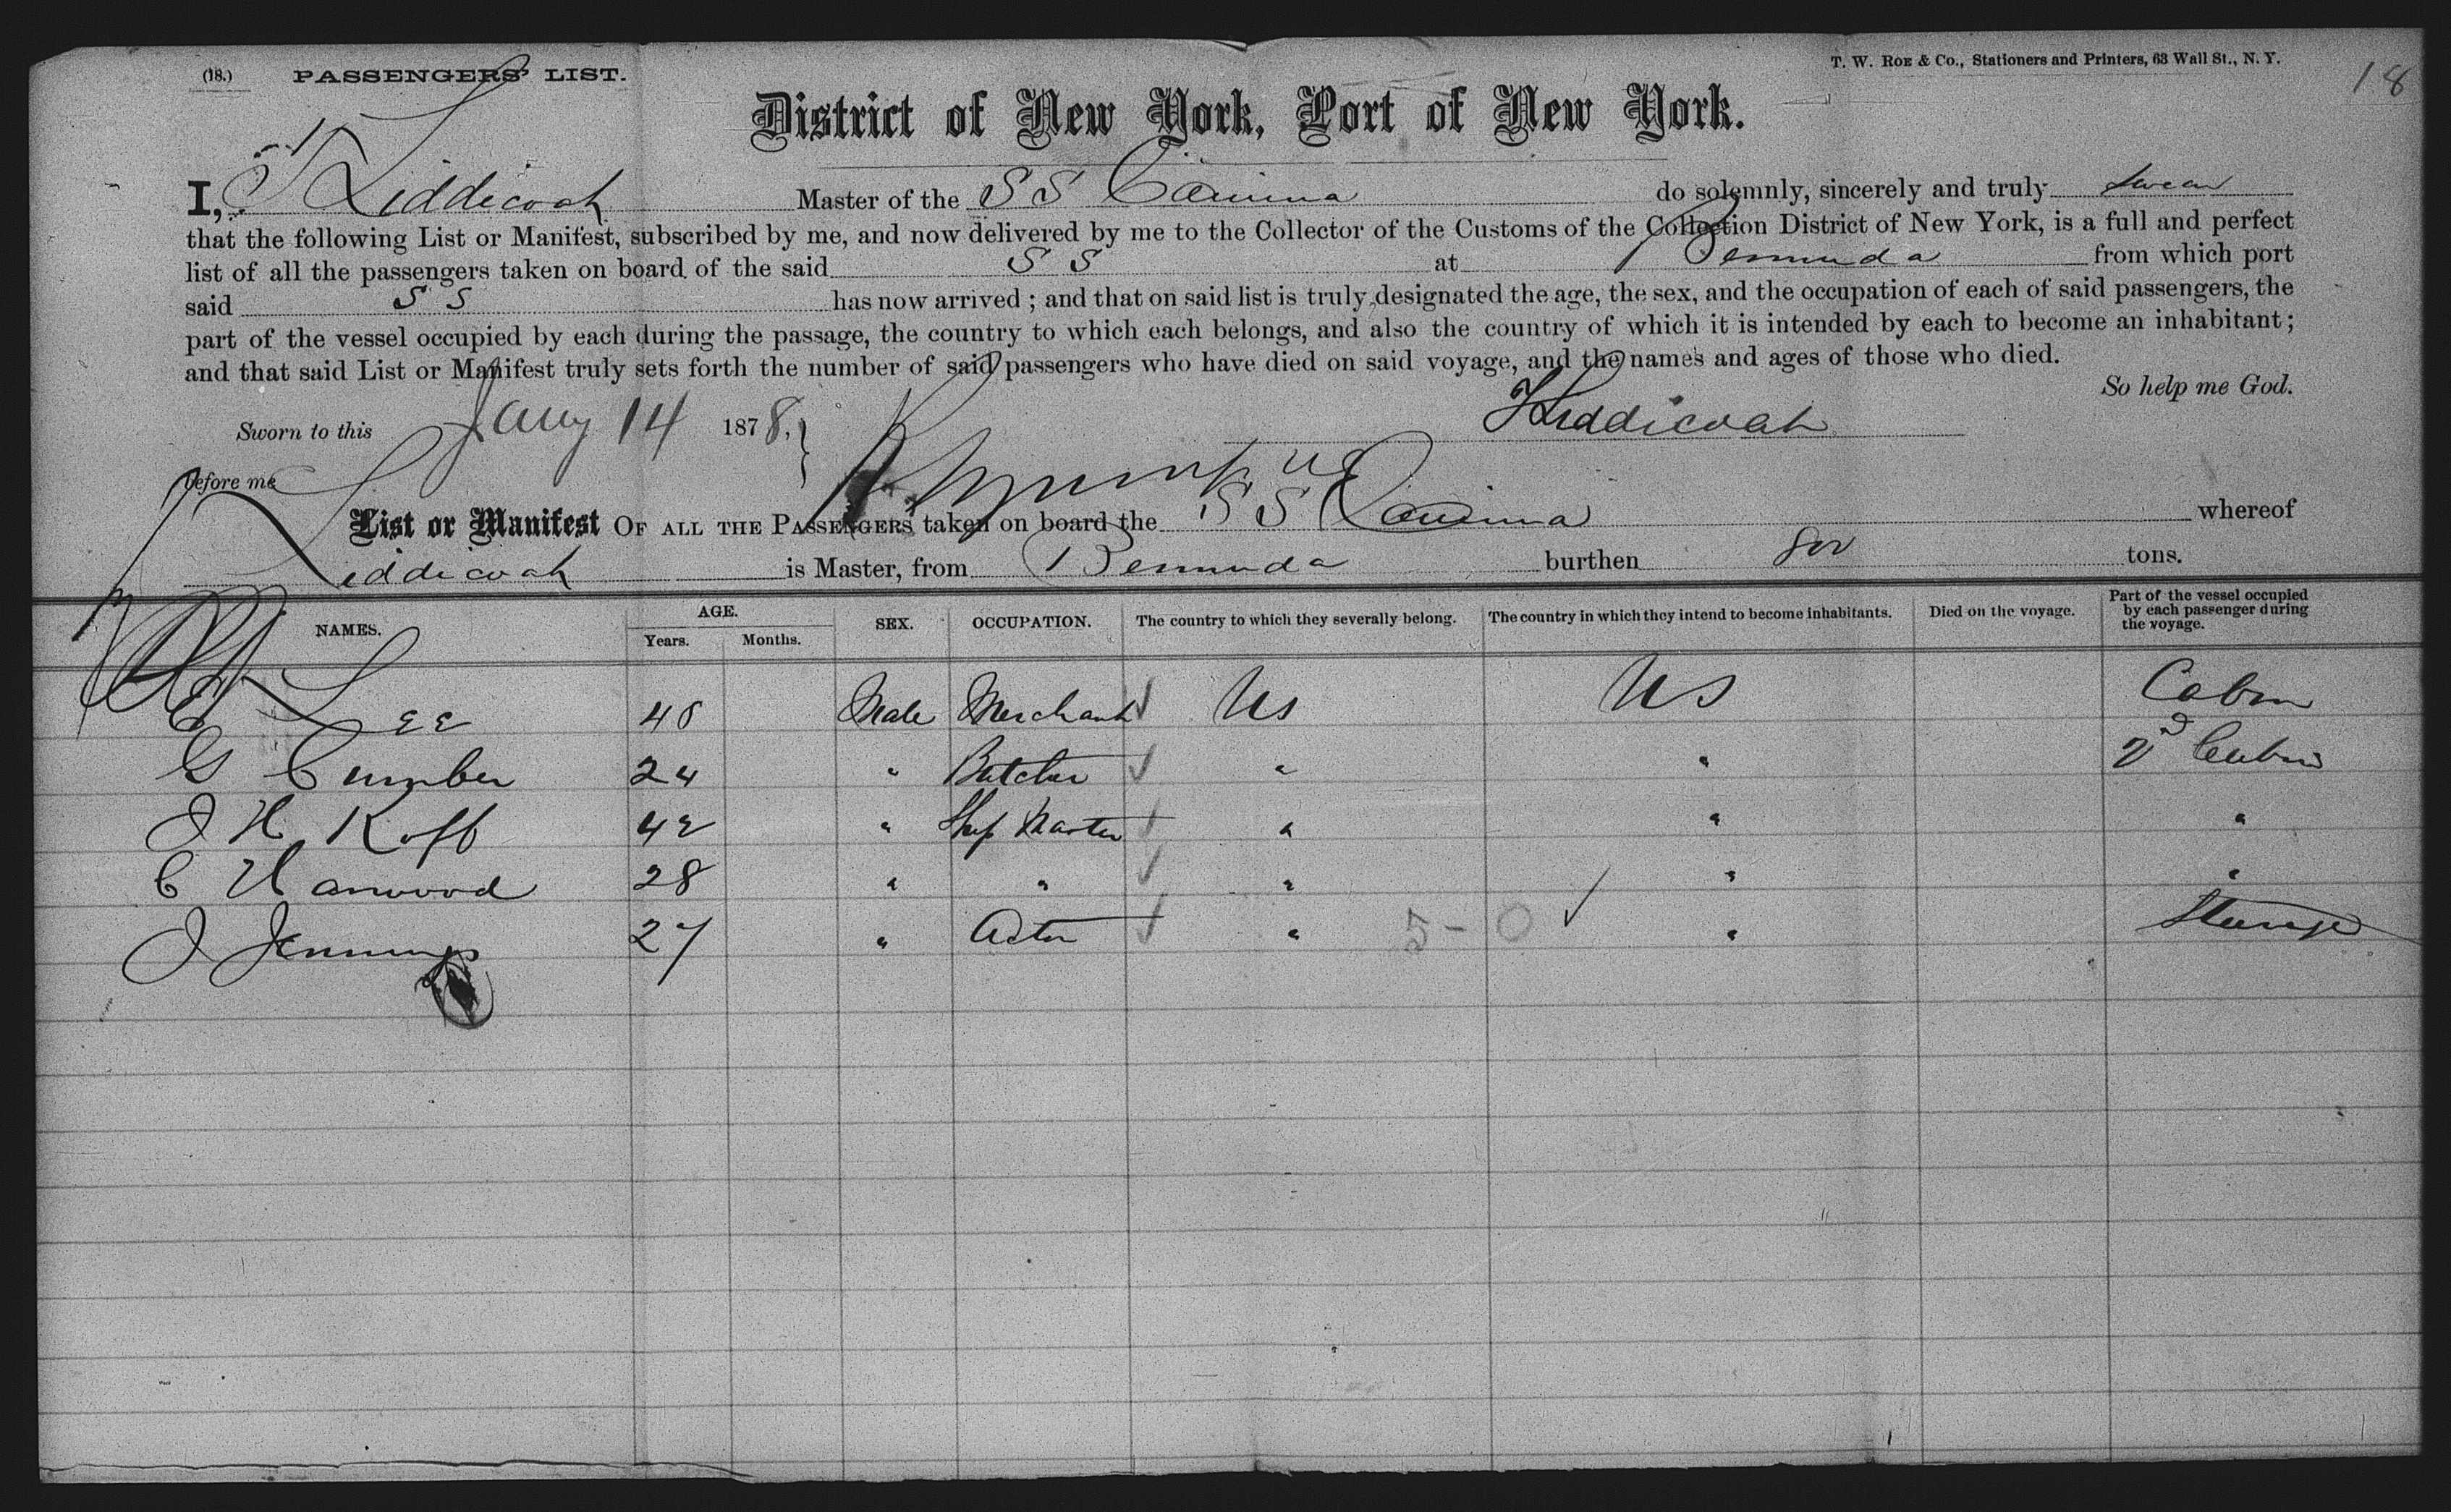 (18.) PASSENGERS' LIST.
T. W. Roe & Co., Stationers and Printers, 63 Wall St., N. Y.
18
District of New York, Port of New York.
I, Liddicoat Master of the SS Canima do solemnly, sincerely and truly swear
that the following List or Manifest, subscribed by me, and now delivered by me to the Collector of the Customs of the Collection District of New York, is a full and perfect
list of all the passengers taken on board of the said SS at Bermuda from which port
said SS has now arrived ; and that on said list is truly designated the age, the sex, and the occupation of each of said passengers, the
part of the vessel occupied by each during the passage, the country to which each belongs, and also the country of which it is intended by each to become an inhabitant ;
and that said List or Manifest truly sets forth the number of said passengers who have died on said voyage, and the names and ages of those who died.
So help me God.
Sworn to this Jany 14 1878, Liddicoat
before me
List or Manifest OF ALL THE PASSENGERS taken on board the SS Canima whereof
Liddicoat is Master, from Bermuda burthen tons.
NAMES. AGE. Years. Months. SEX. OCCUPATION. The country to which they severally belong. The country in which they intend to become inhabitants. Died on the voyage. Part of the vessel occupied by each passenger during the voyage.
Lee 40 Male Merchant US US Cabin
G Cumber 24 " Butcher " " 2d Cabin
J H Koff 42 " Ship Master " " "
C Harwood 28 " " " " "
J Jennings 27 " Actor " 5-0 " Steerage